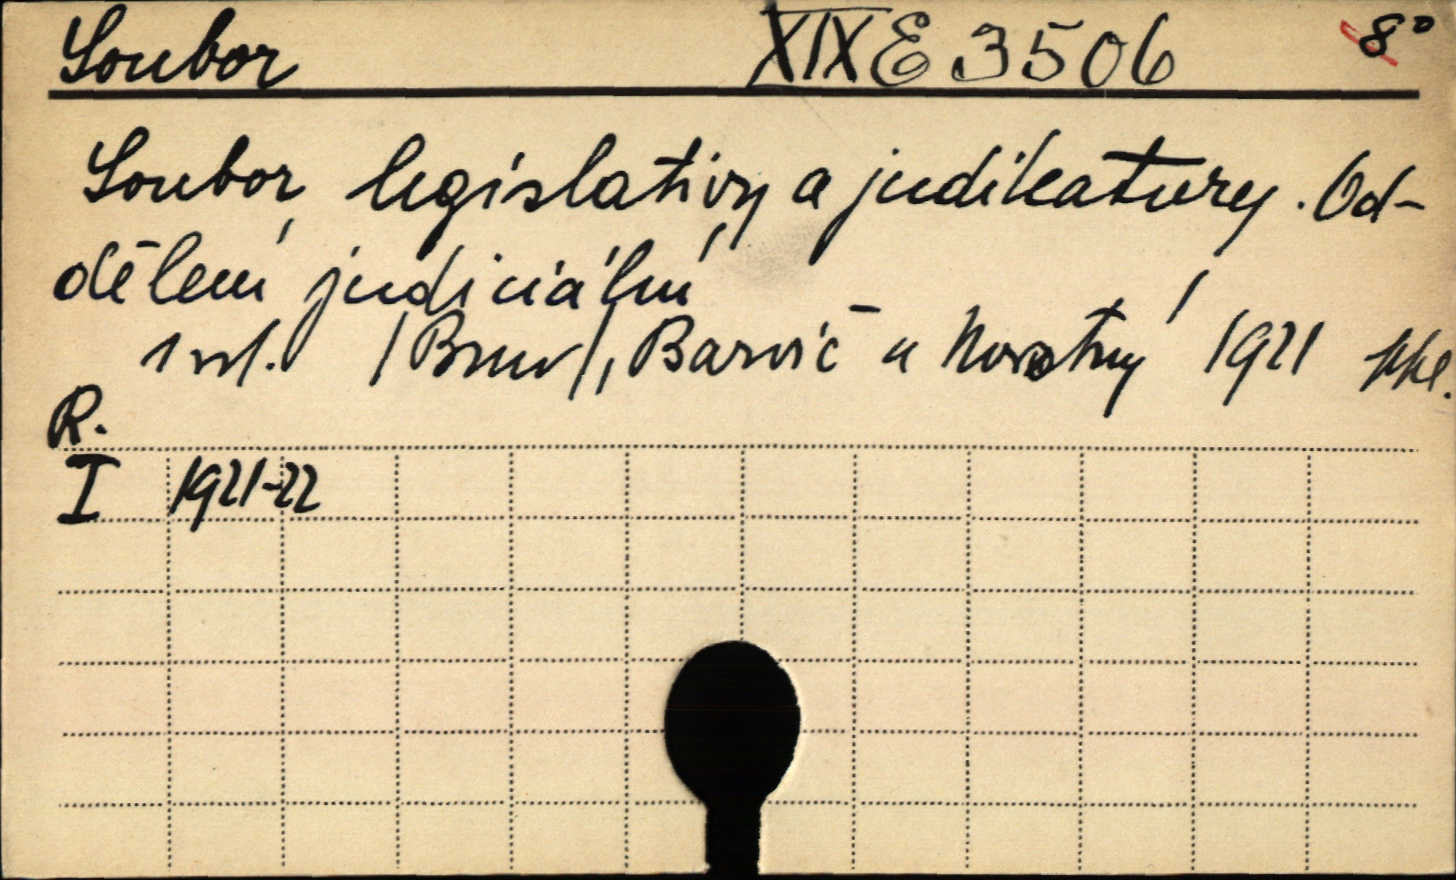 Soubor XIX E 3506 8°
Soubor legislativy a judikatury. Od-
dělení judiciální
1 vol. /Brno/, Barvič a Novotný 1921
R.
I 1921-22